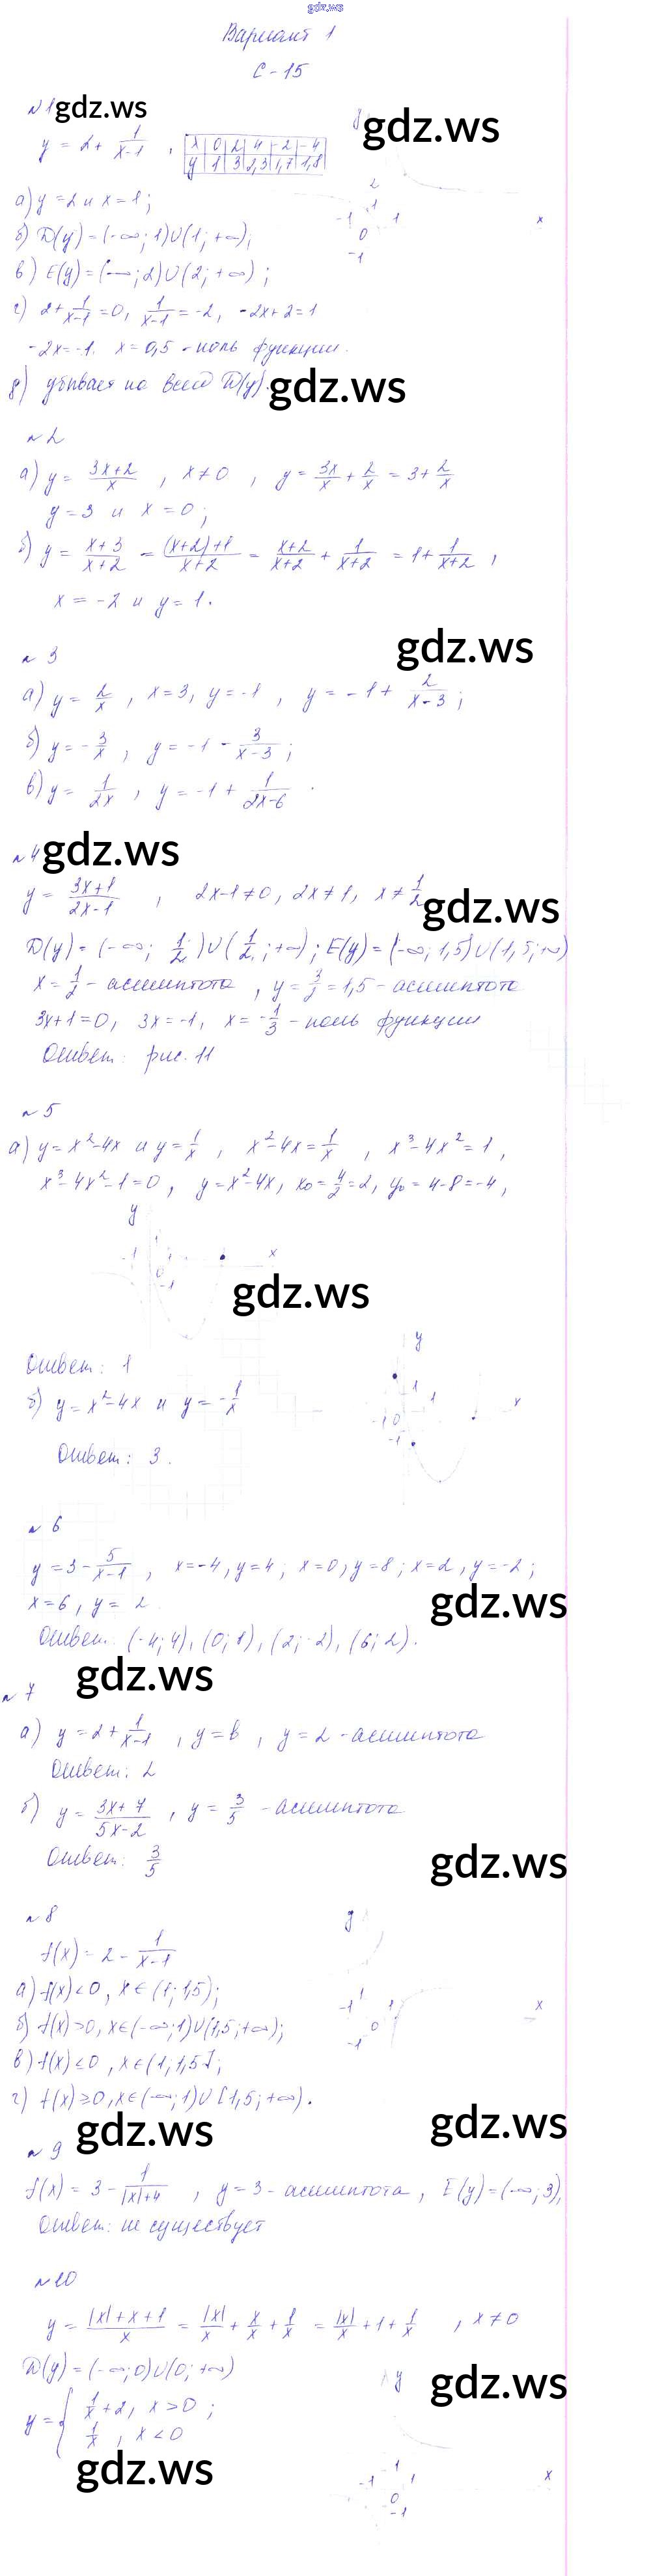 gdz.ws
Вариант 1
С-15
№1 gdz.ws
y = 2 + 1/(x-1) ,
x 0 2 4 -2 -4
y 1 3 2,3 1,7 1,8
gdz.ws
а) y = 2 и x = 1;
б) D(y) = (-∞; 1)∪(1; +∞);
в) E(y) = (-∞; 2)∪(2; +∞);
г) 2 + 1/(x-1) = 0, 1/(x-1) = -2, -2x + 2 = 1
-2x = -1. x = 0,5 - ноль функции.
д) убывает на всей D(y).
gdz.ws
№2
а) y = (3x+2)/x , x ≠ 0 , y = 3x/x + 2/x = 3 + 2/x
y = 3 и x = 0;
б) y = (x+3)/(x+2) = ((x+2)+1)/(x+2) = (x+2)/(x+2) + 1/(x+2) = 1 + 1/(x+2) ,
x = -2 и y = 1.
gdz.ws
№3
а) y = 2/x , x = 3, y = -1 , y = -1 + 2/(x-3) ;
б) y = -3/x , y = -1 - 3/(x-3) ;
в) y = 1/2x , y = -1 + 1/(2x-6) .
№4 gdz.ws
y = (3x+1)/(2x-1) , 2x-1 ≠ 0, 2x ≠ 1, x ≠ 1/2
gdz.ws
D(y) = (-∞; 1/2)∪(1/2; +∞); E(y) = (-∞; 1,5)∪(1,5; +∞)
x = 1/2 - асимптота , y = 3/2 = 1,5 - асимптота
3x+1 = 0, 3x = -1, x = -1/3 - ноль функции
Ответ: рис. 11
№5
а) y = x²-4x и y = 1/x , x²-4x = 1/x , x³-4x² = 1 ,
x³-4x²-1 = 0 , y = x²-4x, x₀ = 4/2 = 2, y₀ = 4-8 = -4 ,
gdz.ws
Ответ: 1
б) y = x²-4x и y = -1/x
Ответ: 3.
№6
y = 3 - 5/(x-1) , x = -4, y = 4; x = 0, y = 8; x = 2, y = -2;
x = 6, y = 2.
gdz.ws
Ответ: (-4; 4), (0; 8), (2; -2), (6; 2).
gdz.ws
№7
а) y = 2 + 1/(x-1) , y = b , y = 2 - асимптота
Ответ: 2
б) y = (3x+7)/(5x-2) , y = 3/5 - асимптота
Ответ: 3/5
gdz.ws
№8
f(x) = 2 - 1/(x-1)
а) f(x) < 0, x ∈ (1; 1,5);
б) f(x) > 0, x ∈ (-∞; 1)∪(1,5; +∞);
в) f(x) ≤ 0, x ∈ (1; 1,5];
г) f(x) ≥ 0, x ∈ (-∞; 1)∪[1,5; +∞).
gdz.ws
gdz.ws
№9
f(x) = 3 - 1/(|x|+4) , y = 3 - асимптота, E(y) = (-∞; 3),
Ответ: не существует
№10
y = (|x|+x+1)/x = |x|/x + x/x + 1/x = |x|/x + 1 + 1/x , x ≠ 0
D(y) = (-∞; 0)∪(0; +∞)
gdz.ws
y = { 1/x + 2, x > 0 ;
1/x , x < 0
gdz.ws